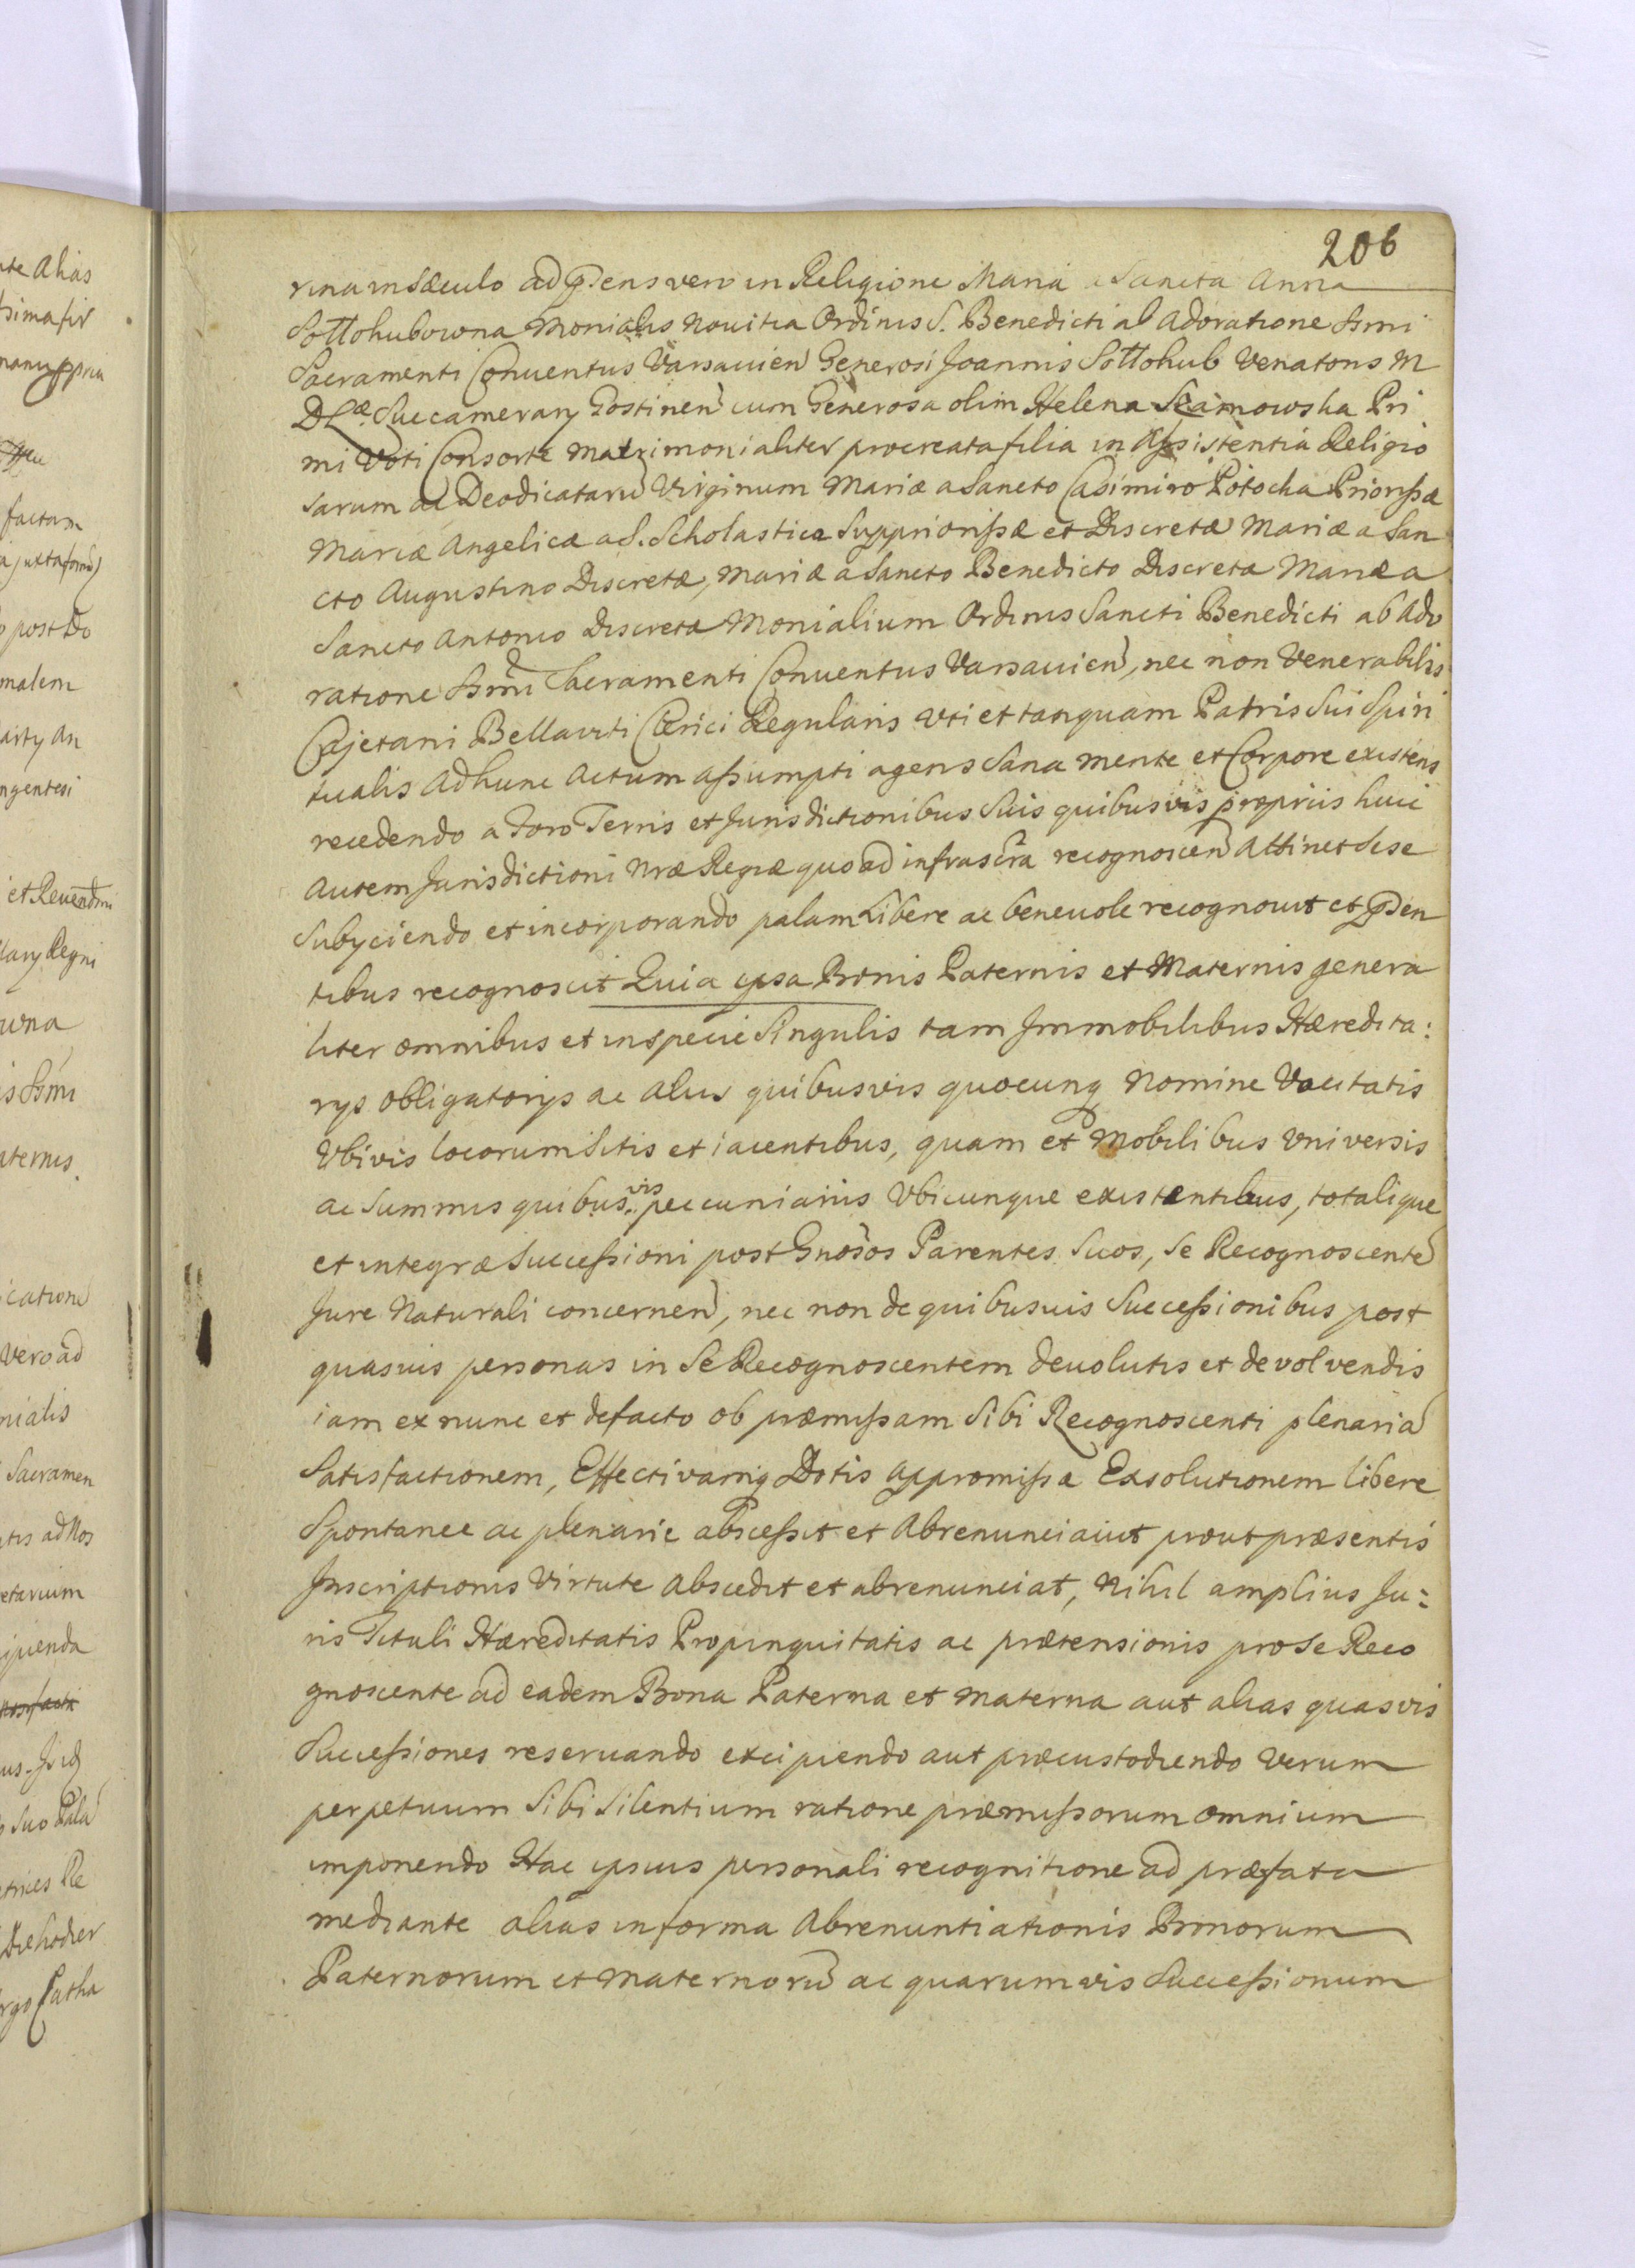 206
rina in Sæculo ad gdens vero in Religione Maria a Sancta Anna
Sottohubowna Monialis Novitia Ordinis S. Benedicti ab Adoratione Ssmi
Sacramenti Conventus Varsavien Generosi Joannis Sottohub Venatoris M
D Læ. Succamerary Gostinen cum Generosa olim Helena Skarnowska Pri
mi Voti Consorte matrimonialiter procreata filia in Assistentia Religio
sarum ac Deodicataru Virginum Mariæ a Sancto Casimiro Potocka Priorissæ
Mariæ Angelicæ a S. Scholastica Suppriorissæ et Discretæ Mariæ a San
cto Augustino Discretæ, Mariæ a Sancto Benedicto Discretæ Mariæ a
Sancto Antonio Discretæ Monialium Ordinis Sancti Benedicti ab Ado
ratione Ssmi Sacramenti Conventus Varsavien, nec non Venerabilis
Cajetani Bellaviti Clerici Regularis uti et tanquam Patris Sui Spiri
tualis Ad hunc Actum assumpti agens Sana mente et Corpore existens
recedendo a Foro Terris et Jurisdictionibus Suis quibusvis propriis huic
Autem Jurisdictioni Nræ Regiæ quo ad infrascra recognoscen Attinet Sese
Subyciendo et incorporando palam Libere ac benevole recognovit et gden
tibus recognoscit Quia ipsa Bonis Paternis et Maternis genera
liter omnibus et in specie Singulis tam Immobilibus Hæredita:
rys obligatorys ac alys quibusvis quocunq Nomine Vocitatis
Vbivis locorum Sitis et iacentibus, quam et Mobilibus Vniversis
ac Summis quibus vis pecuniariis Vbicunque existentibus, totalique
et integræ Successioni post Gnosos Parentes Suos, Se Recognoscente
Jure Naturali concernen, nec non de quibusvis Successionibus post
quasvis personas in Se Recognoscentem devolutis et devolvendis
iam ex nunc et de facto ob præmissam Sibi Recognoscenti plenaria
Satisfactionem, Effectivamq Dotis appromissæ Exsolutionem libere
Spontanee ac plenarie abscessit et Abrenunciavit prout præsentis
Inscriptionis Virtute Abscedit et abrenunciat, Nihil amplius Ju:
ris Tituli Hæreditatis Propinquitatis ac prætensionis pro Se Reco
gnoscente ad eadem Bona Paterna et Materna aut alias quasvis
Successiones reservando excipiendo aut præcustodiendo Verum
perpetuum Sibi Silentium ratione præmissorum omnium
imponendo Hac ipsius personali recognitione ad præfata
mediante alias in forma Abrenuntiationis Bonorum
Paternorum et Maternoru ac quarumvis Successionum